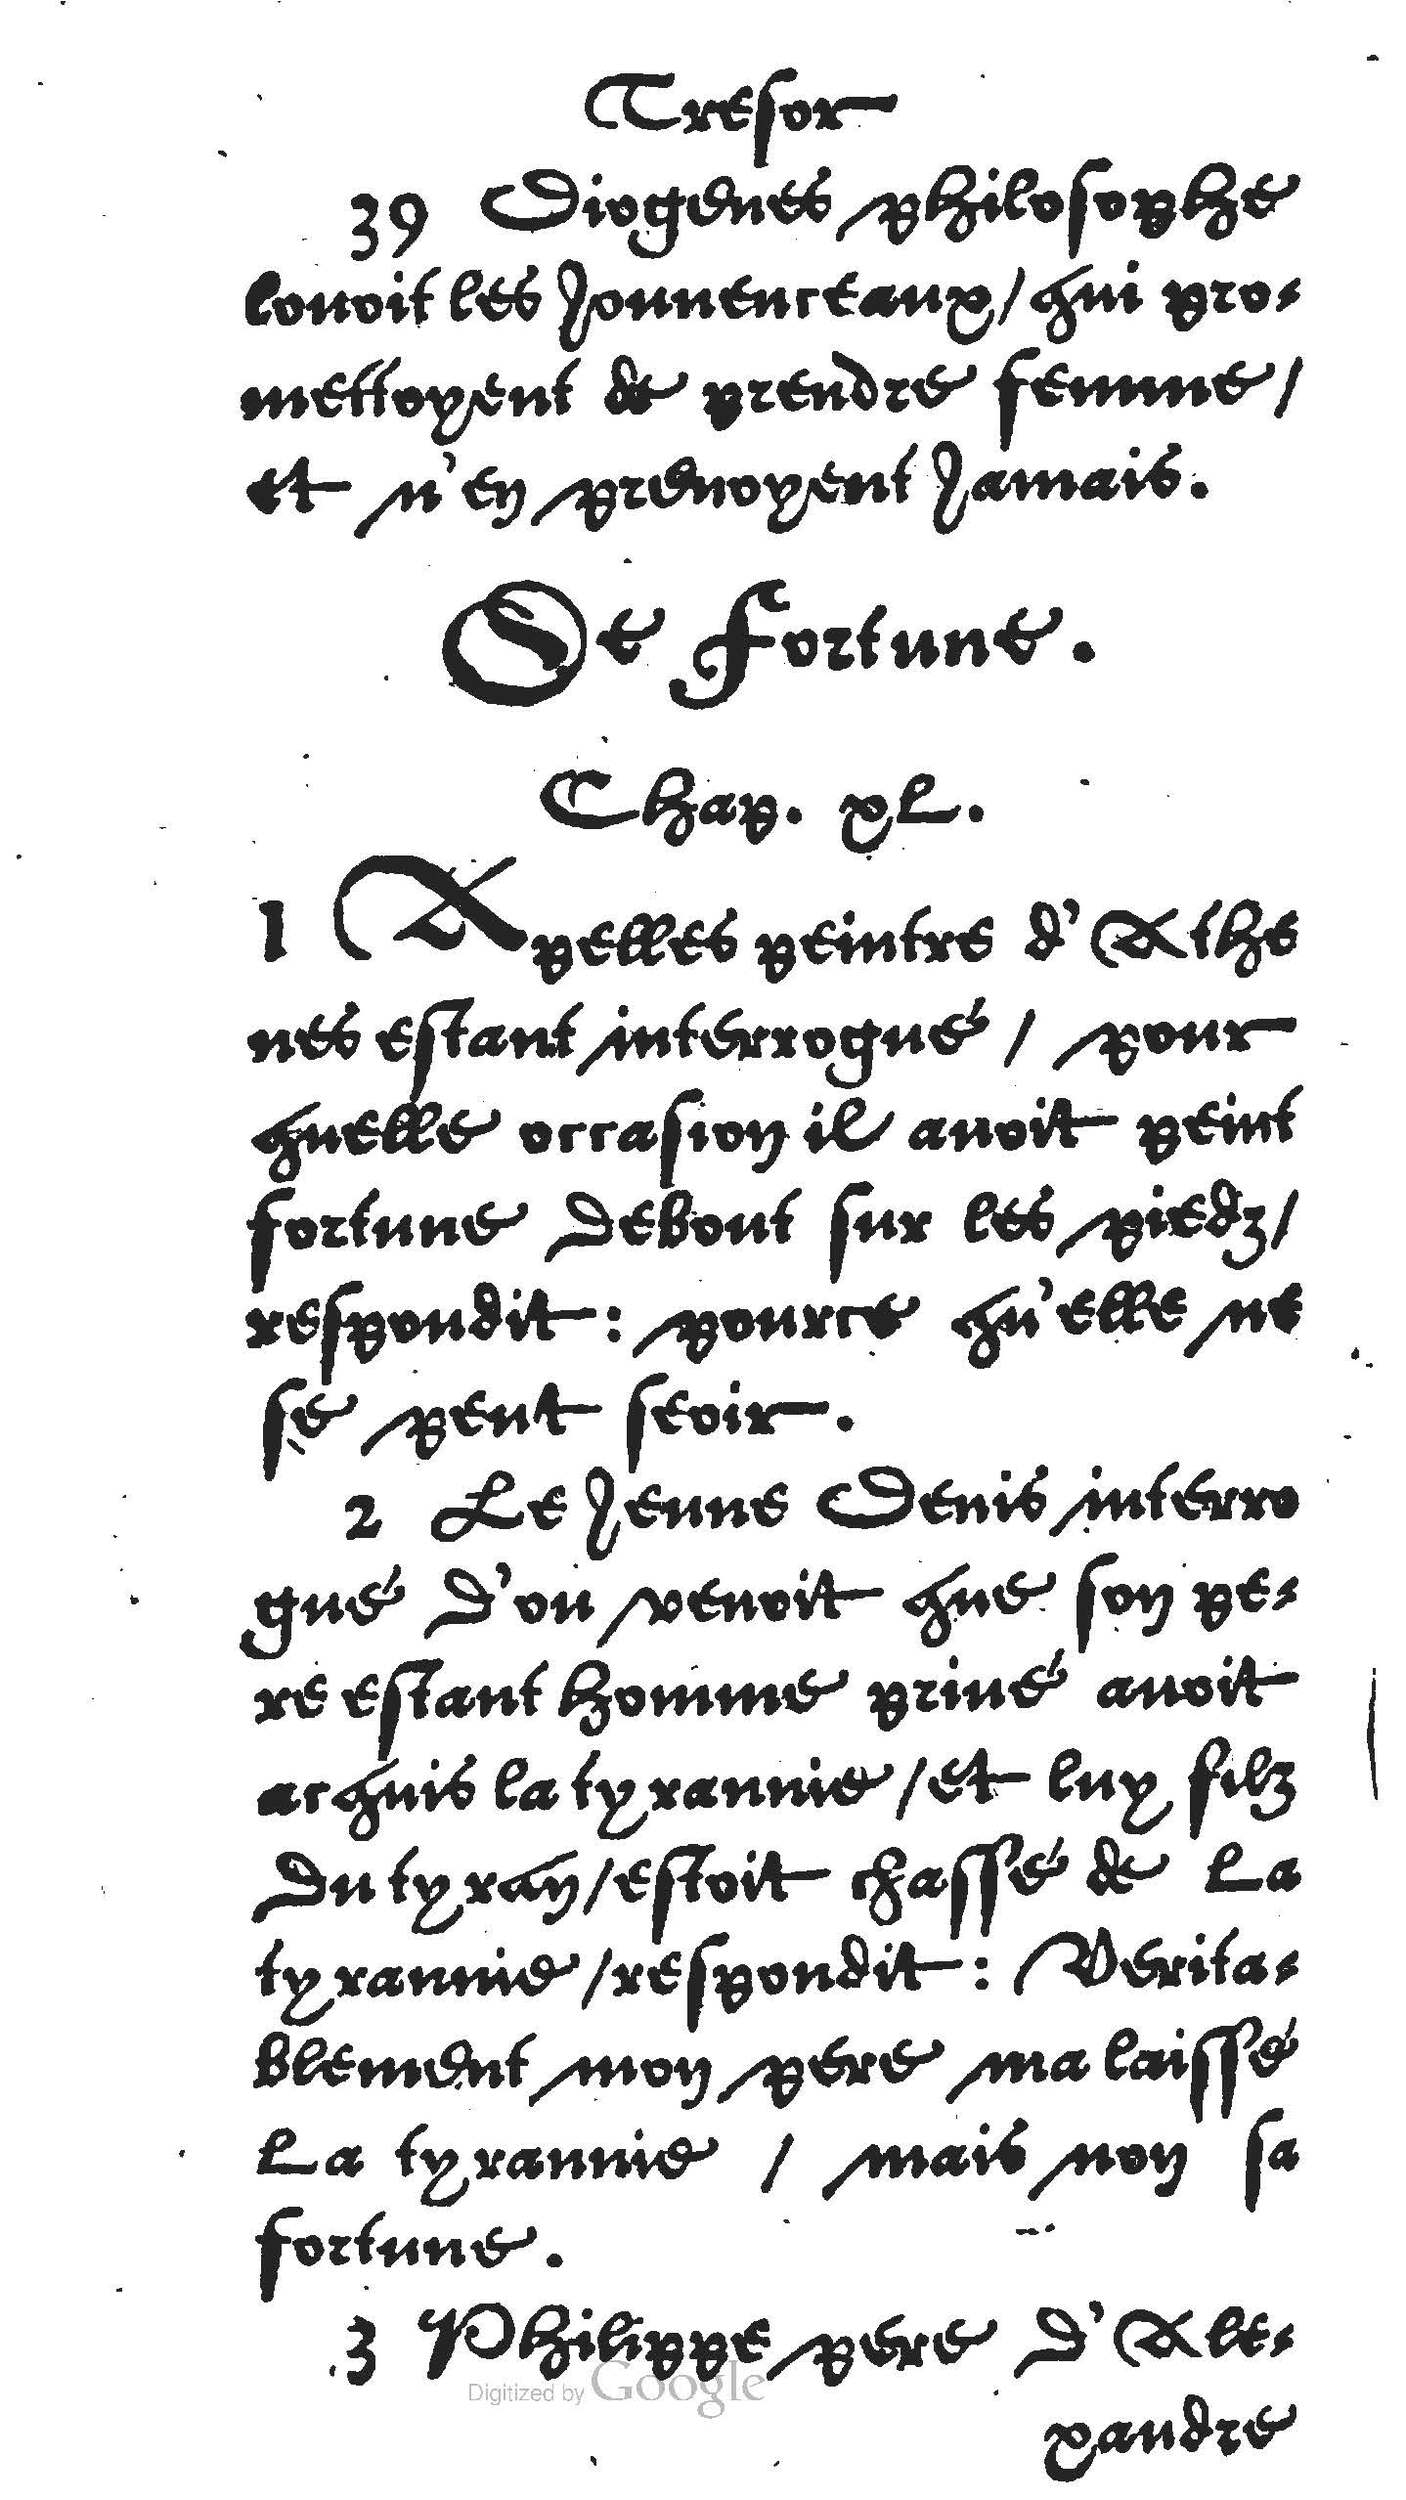 Tresor
39 Diogenes philosophe
louoit les Jouuenceaux/ qui pro-
mettoyent de prendre femme/
et n'en prenoyent Jamais.
De Fortune.
Chap. xL.
1 Apelles peintre d'Athe
nes estant interrogué/ pour
quelle occasion il auoit peint
fortune debout sur les piedz/
respondit: pource qu'elle ne
se peut seoir.
2 Le Jeune Denis interro
gué d'ou venoit que son pe-
re estant homme priué auoit
acquis la tyrannie/ et luy filz
du tyran/ estoit chassé de la
tyrannie/ respondit: Verita-
blement mon pere ma laissé
la tyrannie / mais non sa
fortune.
3 Philippe pere d'Ale-
Digitized by Google
xandre